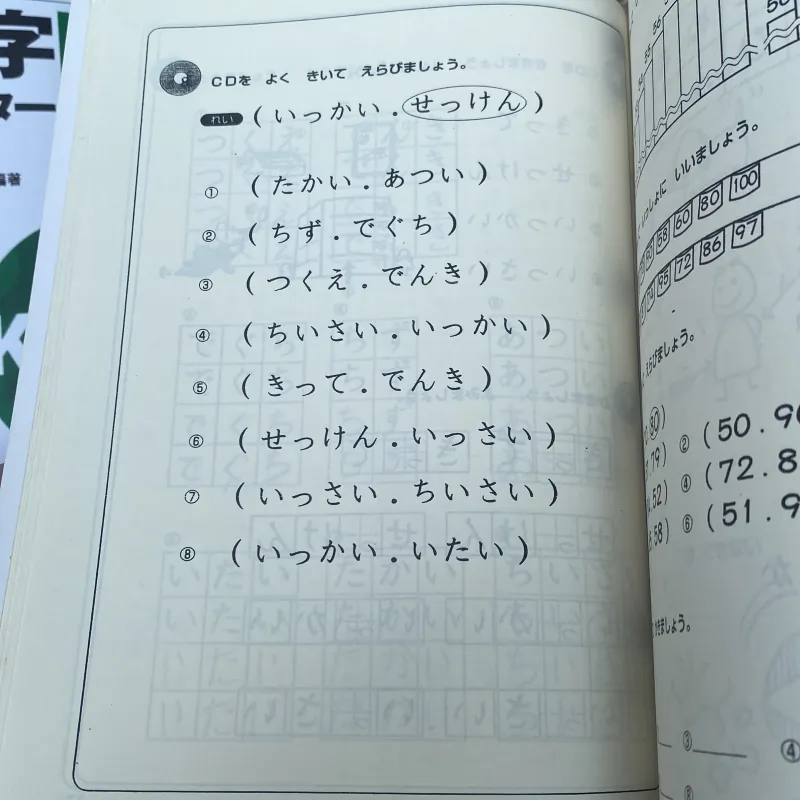 CDを よく きいて えらびましょう。
れい (いっかい.せっけん)
① (たかい.あつい)
② (ちず.でぐち)
③ (つくえ.でんき)
④ (ちいさい.いっかい)
⑤ (きって.でんき)
⑥ (せっけん.いっさい)
⑦ (いっさい.ちいさい)
⑧ (いっかい.いたい)
字
ター
著
いいましょう。
58 60 80 100
95 72 86 97
えらびましょう。
② (50.90
79) ④ (72.8
52)
58) ⑥ (51.9
きましょう。
③
④